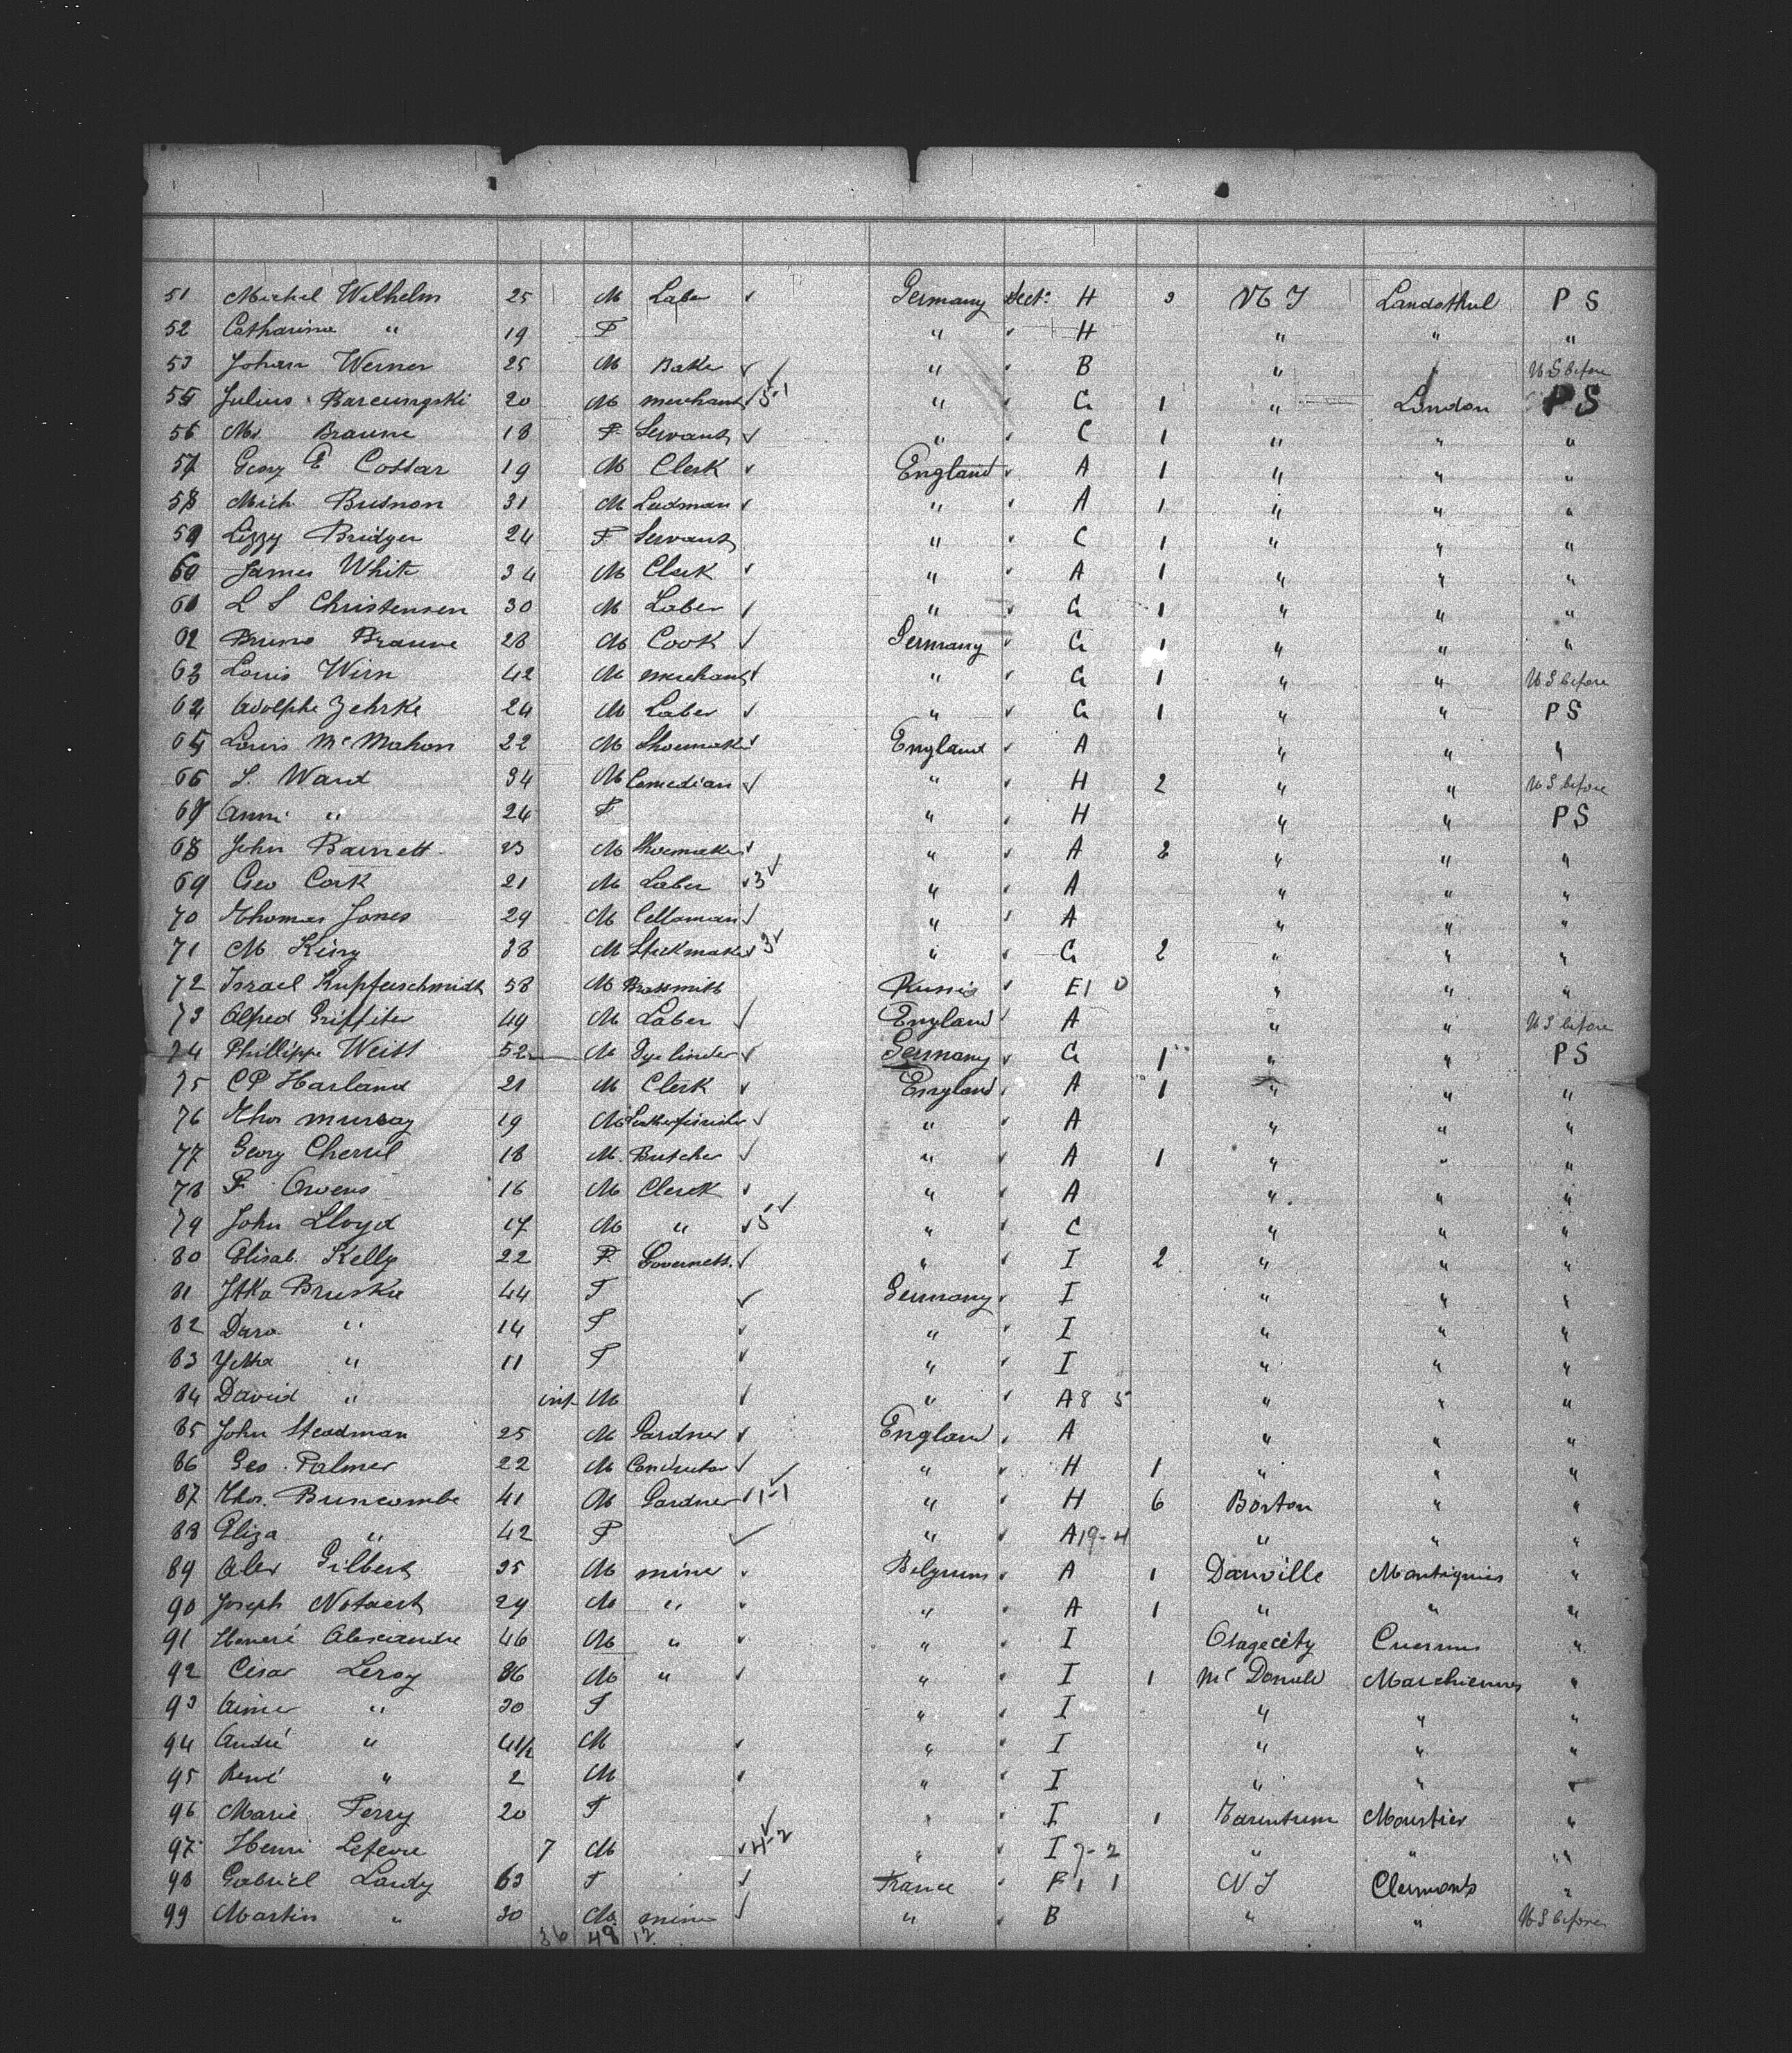 51 Michel Wilhelm 25 M Laber Germany Sect. H 3 N Y Landsthul P S
52 Catharina " 19 F " H " " "
53 Johan Werner 25 M Baker " B " " U S before
55 Julius 20 M merchant 5-1 " G 1 " London P S
56 Ms Braune 18 F Servant " C 1 " " "
57 Georg E Cossar 19 M Clerk England A 1 " " "
58 Mich. Busnon 31 M " A 1 " " "
59 Lizzy Bridger 24 F Servant " C 1 " " "
60 James White 34 M Clerk " A 1 " " "
61 L S Christensen 30 M Laber " G 1 " " "
62 Bruno Braune 28 M Cook Germany G 1 " " "
63 Louis Wirn 42 M merchant " G 1 " " U S before
64 Adolphe Zehrke 24 M Laber " G 1 " " P S
65 Louis McMahon 22 M Shoemaker England A " " "
66 S. Ward 34 M Comedian " H 2 " " U S before
67 Anni " 24 F " H " " P S
68 John Barnett 23 M Shoemaker " A 2 " " "
69 Geo Cork 21 M Laber 3 " A " " "
70 Thomas Jones 29 M Cellaman " A " " "
71 M King 38 M Stickmaker 3 " G 2 " " "
72 Israel Kupferschmidt 58 M Brassmith Russia E1 0 " " "
73 Alfred Griffiter 49 M Laber England A " " U S before
74 Phillippe Weitt 52 M Germany G 1 " " P S
75 C P Harland 21 M Clerk England A 1 " " "
76 Thos Murray 19 M Leatherfinisher " A " " "
77 Georg Cherril 18 M. Butcher " A 1 " " "
78 F Owens 16 M Clerk " A " " "
79 John Lloyd 17 M " 5 " C " " "
80 Elisab. Kelly 22 F Governess. " I 2 " " "
81 Jtka Bruskie 44 F Germany I " " "
82 Dara " 14 F " I " " "
83 Yetka " 11 F " I " " "
84 David " inf M " A8 5 " " "
85 John Steadman 25 M Gardner England A " " "
86 Geo. Palmer 22 M Conductor " H 1 " " "
87 Thos. Buncombe 41 M Gardner 1-1 " H 6 Boston " "
88 Eliza " 42 F " A19-4 " " "
89 Alex Gilbert 35 M miner Belgium A 1 Danville Montignies "
90 Joseph Notaert 29 M " " A 1 " " "
91 Honoré Alexandre 46 M " " I Osagecity Cuesmes "
92 César Leroy 36 M " " I 1 McDonald Marchiennes "
93 Aimer " 30 F " I " " "
94 André " 4 1/2 M " I " " "
95 René " 2 M " I " " "
96 Marie Ferry 20 F " I 1 Tarentum Moustier "
97 Henri Lefevre 7 M 4-2 " I 9-2 " " "
98 Gabriel Lardy 63 F France F 1 1 N Y Clermont "
99 Martin " 30 M. miner " B " " U S before
36 48 12